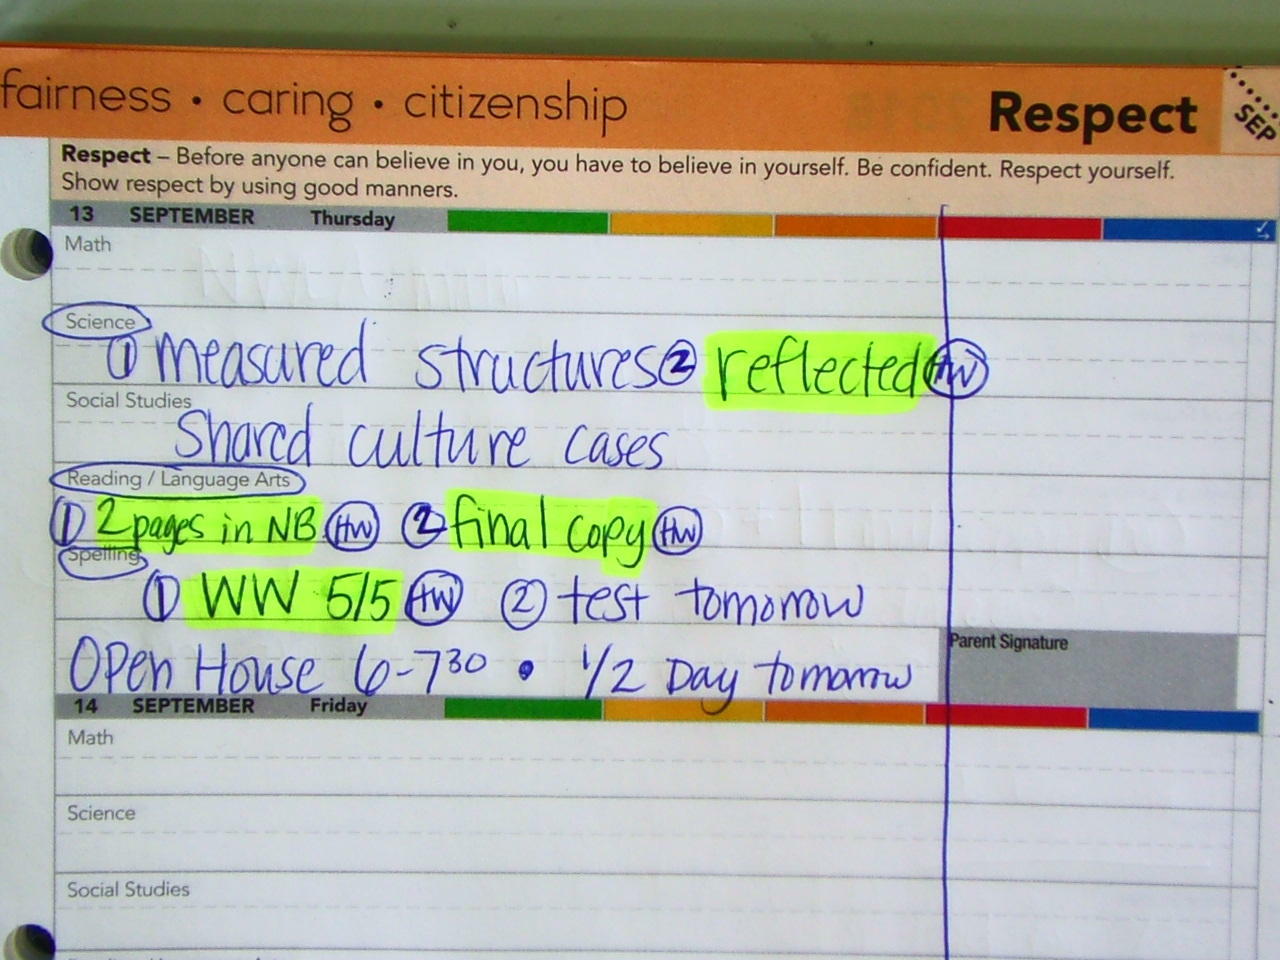 fairness • caring • citizenship Respect SEP
Respect – Before anyone can believe in you, you have to believe in yourself. Be confident. Respect yourself.
Show respect by using good manners.
13 SEPTEMBER Thursday
Math
Science
① measured structures ② reflected HW
Social Studies
Shared culture cases
Reading / Language Arts
① 2 pages in NB HW ② final copy HW
Spelling
① WW 5/5 HW ② test tomorrow
Parent Signature
Open House 6-730 • 1/2 Day tomorrow
14 SEPTEMBER Friday
Math
Science
Social Studies